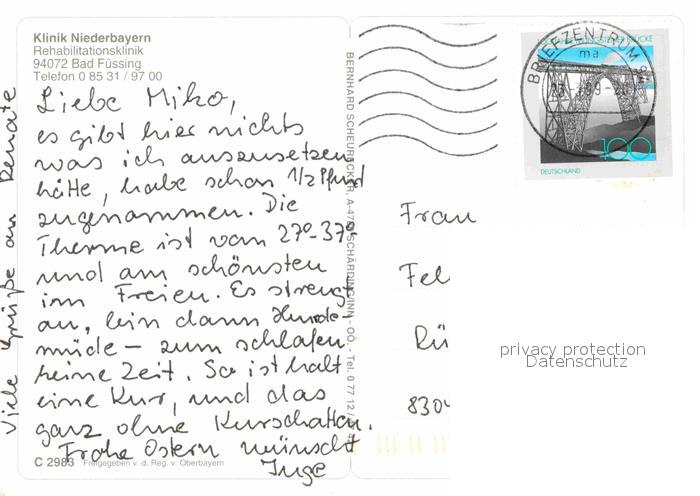 Klinik Niederbayern
Rehabilitationsklinik
94072 Bad Füssing
Telefon 0 85 31 / 97 00
Liebe Miko,
es gibt hier nichts
was ich auszusetzen
hätte, habe schon 1/2 Pfund
zugenommen. Die
Therme ist von 27°-37°
und am schönsten
im Freien. Es strengt
an, bin dann Hunde-
müde – zum schlafen
keine Zeit. So ist halt
eine Kur, und das
ganz ohne Kurschatten.
Frohe Ostern wünscht
Inge
Viele Grüße an Renate
C 2983 Freigegeben v. d. Reg. v. Oberbayern
BERNHARD SCHEURECKER, A-4780 SCHÄRDING/INN - OÖ. Tel. 0 77 12 /
BRIEFZENTRUM
ma
BRÜCKE
100
DEUTSCHLAND
Frau
Fel
Rü
8304
privacy protection
Datenschutz